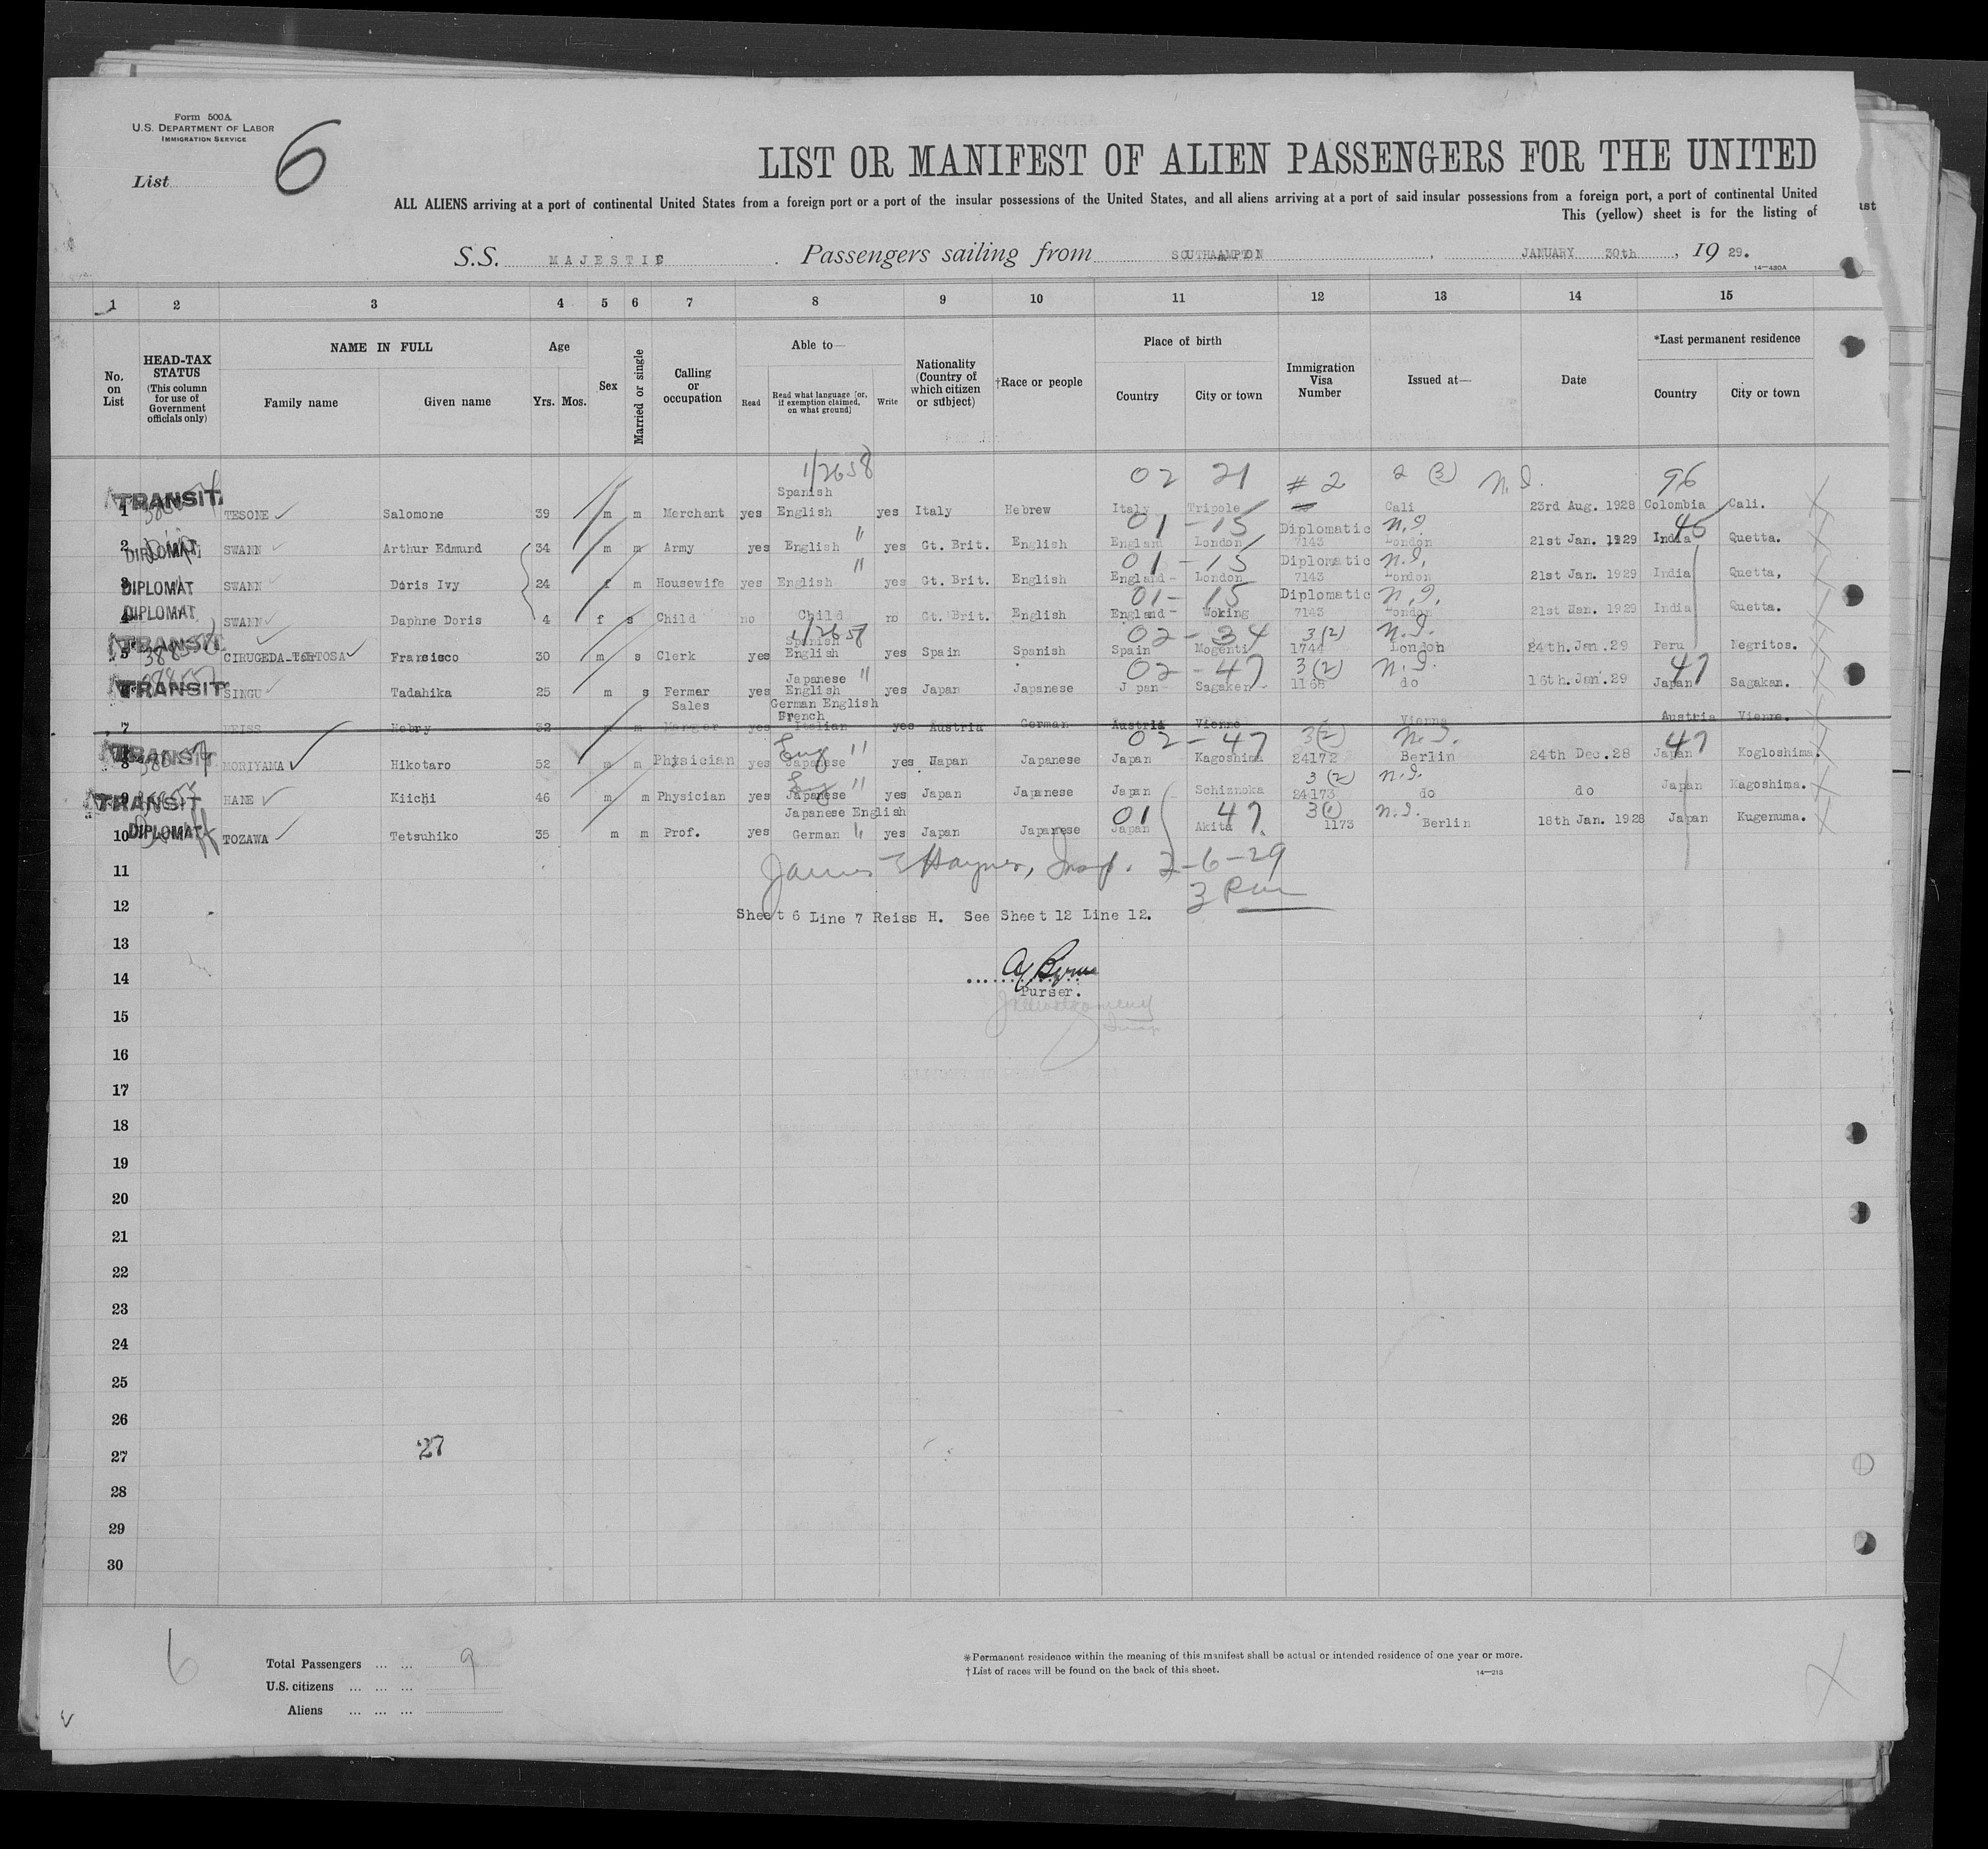 Form 500A
U.S. DEPARTMENT OF LABOR
IMMIGRATION SERVICE
List 6
LIST OR MANIFEST OF ALIEN PASSENGERS FOR THE UNITED
ALL ALIENS arriving at a port of continental United States from a foreign port or a port of the insular possessions of the United States, and all aliens arriving at a port of said insular possessions from a foreign port, a port of continental United
This (yellow) sheet is for the listing of
S.S. MAJESTIC. Passengers sailing from SOUTHAMPTON, JANUARY 30th, 1929.
14—480A
1 2 3 4 5 6 7 8 9 10 11 12 13 14 15
No. on List
HEAD-TAX STATUS (This column for use of Government officials only)
NAME IN FULL
Family name Given name
Age
Yrs. Mos.
Sex
Married or single
Calling or occupation
Able to—
Read Read what language [or, if exemption claimed, on what ground] Write
Nationality (Country of which citizen or subject)
†Race or people
Place of birth
Country City or town
Immigration Visa Number
Issued at—
Date
*Last permanent residence
Country City or town
1/2658 02 21 # 2 2 (3) N.I. 96
TRANSIT
1 TESONE Salomone 39 m m Merchant yes Spanish English yes Italy Hebrew Italy Tripole Cali 23rd Aug. 1928 Colombia Cali.
01 - 15 N.I. 45
2 DIPLOMAT SWANN Arthur Edmund 34 m m Army yes English " yes Gt. Brit. English England London Diplomatic 7143 London 21st Jan. 1929 India Quetta.
01 - 15 N.I.
3 DIPLOMAT SWANN Doris Ivy 24 f m Housewife yes English " yes Gt. Brit. English England- London Diplomatic 7143 London 21st Jan. 1929 India Quetta,
01 - 15 N.I.
4 DIPLOMAT SWANN Daphne Doris 4 f s Child no Child no Gt. Brit. English England- Woking Diplomatic 7143 London 21st Jan. 1929 India Quetta.
1/2658 02 - 34 3(2) N.I.
5 TRANSIT CIRUGEDA-TORTOSA Fransisco 30 m s Clerk yes Spanish English yes Spain Spanish Spain Mogenti 1744 London 24th.Jan.29 Peru Negritos.
02 - 47 3(2) N.I. 47
TRANSIT SINGU Tadahika 25 m s Fermer yes Japanese " English yes Japan Japanese J pan- Sagaken- 1168 do 16th.Jan.29 Japan Sagakan.
7 32 m m Sales yes German English French Italian yes Austria German Austria Vienne Vienne Austria Vienne.
02 - 47 3(2) N.I. 47
8 TRANSIT MORIYAMA Hikotaro 52 m m Physician yes Eng " Japanese yes Japan Japanese Japan Kagoshima 24172 Berlin 24th Dec.28 Japan Kogloshima.
3 (2) N.I.
9 TRANSIT HANE Kiichi 46 m m Physician yes Eng " Japanese yes Japan Japanese Japan Schiznoka 24173 do do Japan Kagoshima.
01 47 3(1) N.I.
10 DIPLOMAT TOZAWA Tetsuhiko 35 m m Prof. yes Japanese English German " yes Japan Japanese Japan Akita 1173 Berlin 18th Jan. 1928 Japan Kugenuma.
11 James E Haynes, Insp. 2-6-29
3 Pm
12 Sheet 6 Line 7 Reiss H. See Sheet 12 Line 12.
13
14
Purser.
15
16
17
18
19
20
21
22
23
24
25
26
27 27
28
29
30
6
Total Passengers ... ... 9
U.S. citizens ... ... ...
Aliens ... ... ...
*Permanent residence within the meaning of this manifest shall be actual or intended residence of one year or more.
†List of races will be found on the back of this sheet.
14—213